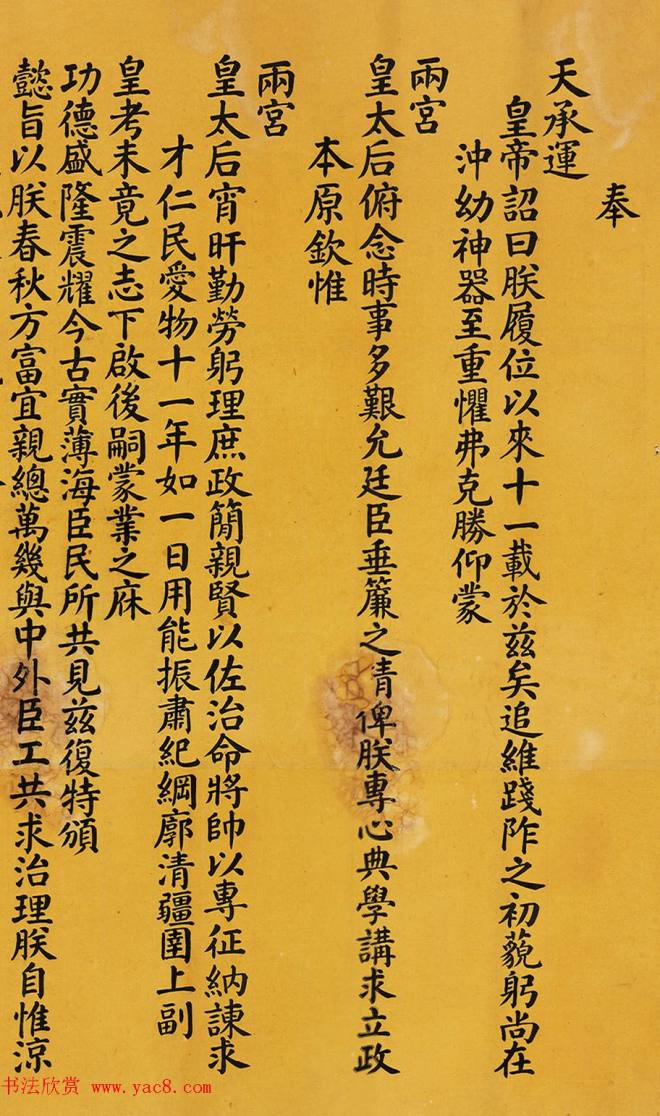 奉
天承運
皇帝詔曰朕履位以來十一載於茲矣追維踐阼之初藐躬尚在
沖幼神器至重懼弗克勝仰蒙
兩宮
皇太后俯念時事多艱允廷臣垂簾之請俾朕專心典學講求立政
本原欽惟
兩宮
皇太后宵旰勤勞躬理庶政簡親賢以佐治命將帥以專征納諫求
才仁民愛物十一年如一日用能振肅紀綱廓清疆圉上副
皇考未竟之志下啟後嗣蒙業之庥
功德盛隆震耀今古實薄海臣民所共見茲復特頒
懿旨以朕春秋方富宜親總萬幾與中外臣工共求治理朕自惟涼
书法欣赏 www.yac8.com